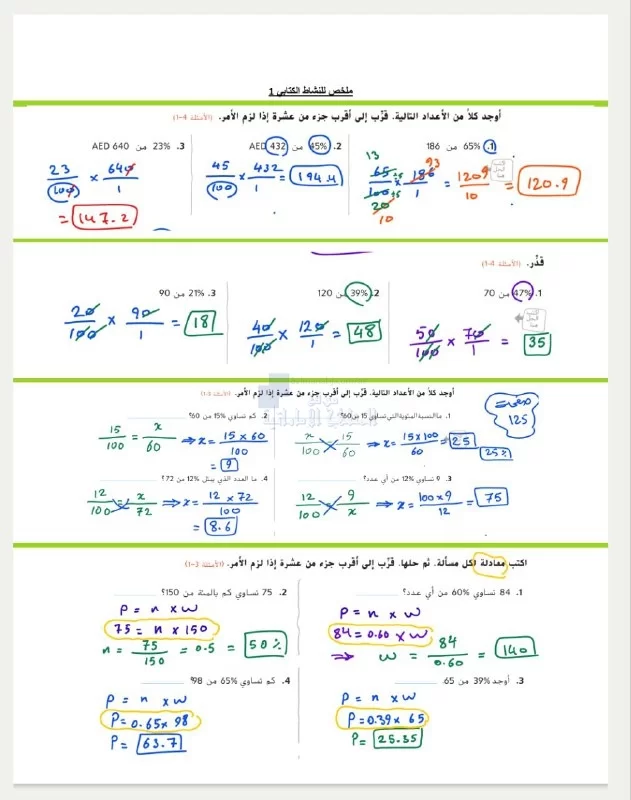 ملخص للنشاط الكتابي 1
أوجد كلاً من الأعداد التالية. قرّب إلى أقرب جزء من عشرة إذا لزم الأمر. (الأمثلة 4–1)
1. 65% من 186
2. 45% من AED 432
3. 23% من AED 640
65/100 × 186/1 = 1209/10 = 120.9
13 93 ÷5 ÷5 20 10
45/100 × 432/1 = 194.4
23/100 × 640/1
= 147.2
قدِّر. (الأمثلة 4–1)
1. 47% من 70
2. 39% من 120
3. 21% من 90
50/100 × 70/1 = 35
40/100 × 120/1 = 48
20/100 × 90/1 = 18
أوجد كلاً من الأعداد التالية. قرّب إلى أقرب جزء من عشرة إذا لزم الأمر.
صفحة
125
1. ما النسبة المئوية التي تساوي 15 من 60؟
2. كم تساوي 15% من 60؟
x/100 = 15/60 ⇒ x = 15×100/60 = 25
25%
15/100 = x/60 ⇒ x = 15×60/100
= 9
3. 9 تساوي 12% من أي عدد؟
4. ما العدد الذي يمثل 12% من 72؟
12/100 = 9/x ⇒ x = 100×9/12 = 75
12/100 = x/72 ⇒ x = 12×72/100
= 8.6
اكتب معادلة لكل مسألة. ثم حلها. قرّب إلى أقرب جزء من عشرة إذا لزم الأمر.
1. 84 تساوي 60% من أي عدد؟
2. 75 تساوي كم بالمئة من 150؟
P = n × w
84 = 0.60 × w
⇒ w = 84/0.60 = 140
P = n × w
75 = n × 150
n = 75/150 = 0.5 = 50%
3. أوجد 39% من 65.
4. كم تساوي 65% من 98؟
P = n × w
P = 0.39 × 65
P = 25.35
P = n × w
P = 0.65 × 98
P = 63.7